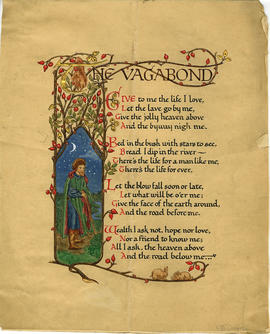 THE VAGABOND
GIVE to me the life I love,
Let the lave go by me,
Give the jolly heaven above
And the byway nigh me.
Bed in the bush with stars to see,
Bread I dip in the river—
There's the life for a man like me,
There's life for ever.
Let the blow fall soon or late,
Let what will be o'er me;
Give the face of the earth around,
And the road before me.
Wealth I ask not, hope nor love,
Nor a friend to know me;
All I ask, the heaven above
And the road below me:—"